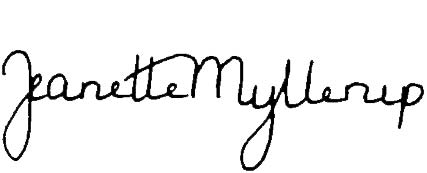 Jeanette Myllerup